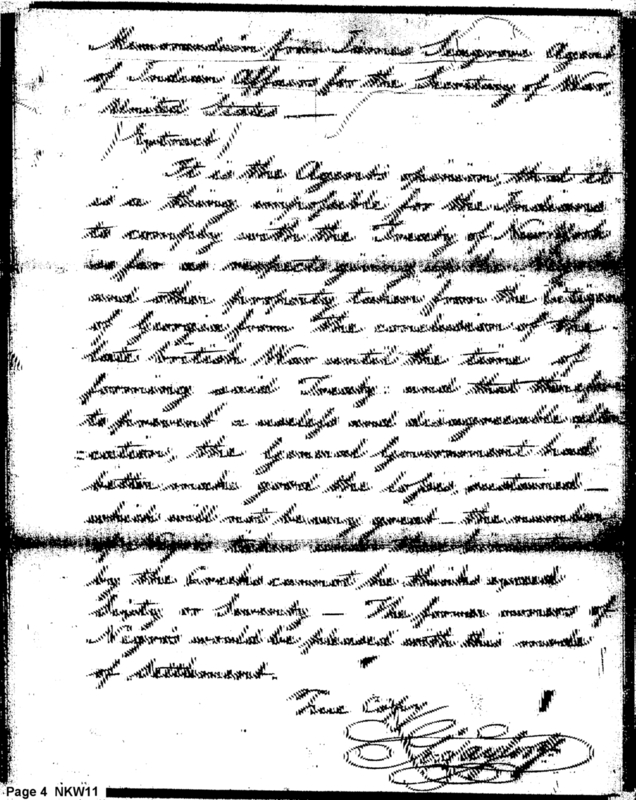 Memorandum from James Seagrove Agent
of Indian Affairs for the Secretary of War
United States —
/ Extract /
It is the Agents opinion, that it
is a thing impossible for the Indians
to comply with the Treaty of New York
so far as respects giving up the
and other property taken from the Citizens
of Georgia from the conclusion of the
last British War until the time of
forming said Treaty: and that therefore
to prevent a useless and disagreeable alter
=cation, the General Government had
better make good the losses sustained —
which will not be very great — the number
by the Creeks cannot he thinks exceed
Sixty or Seventy — The former owners of
Negros would be pleased with this mode
of settlement.
True Copy
Page 4 NKW11